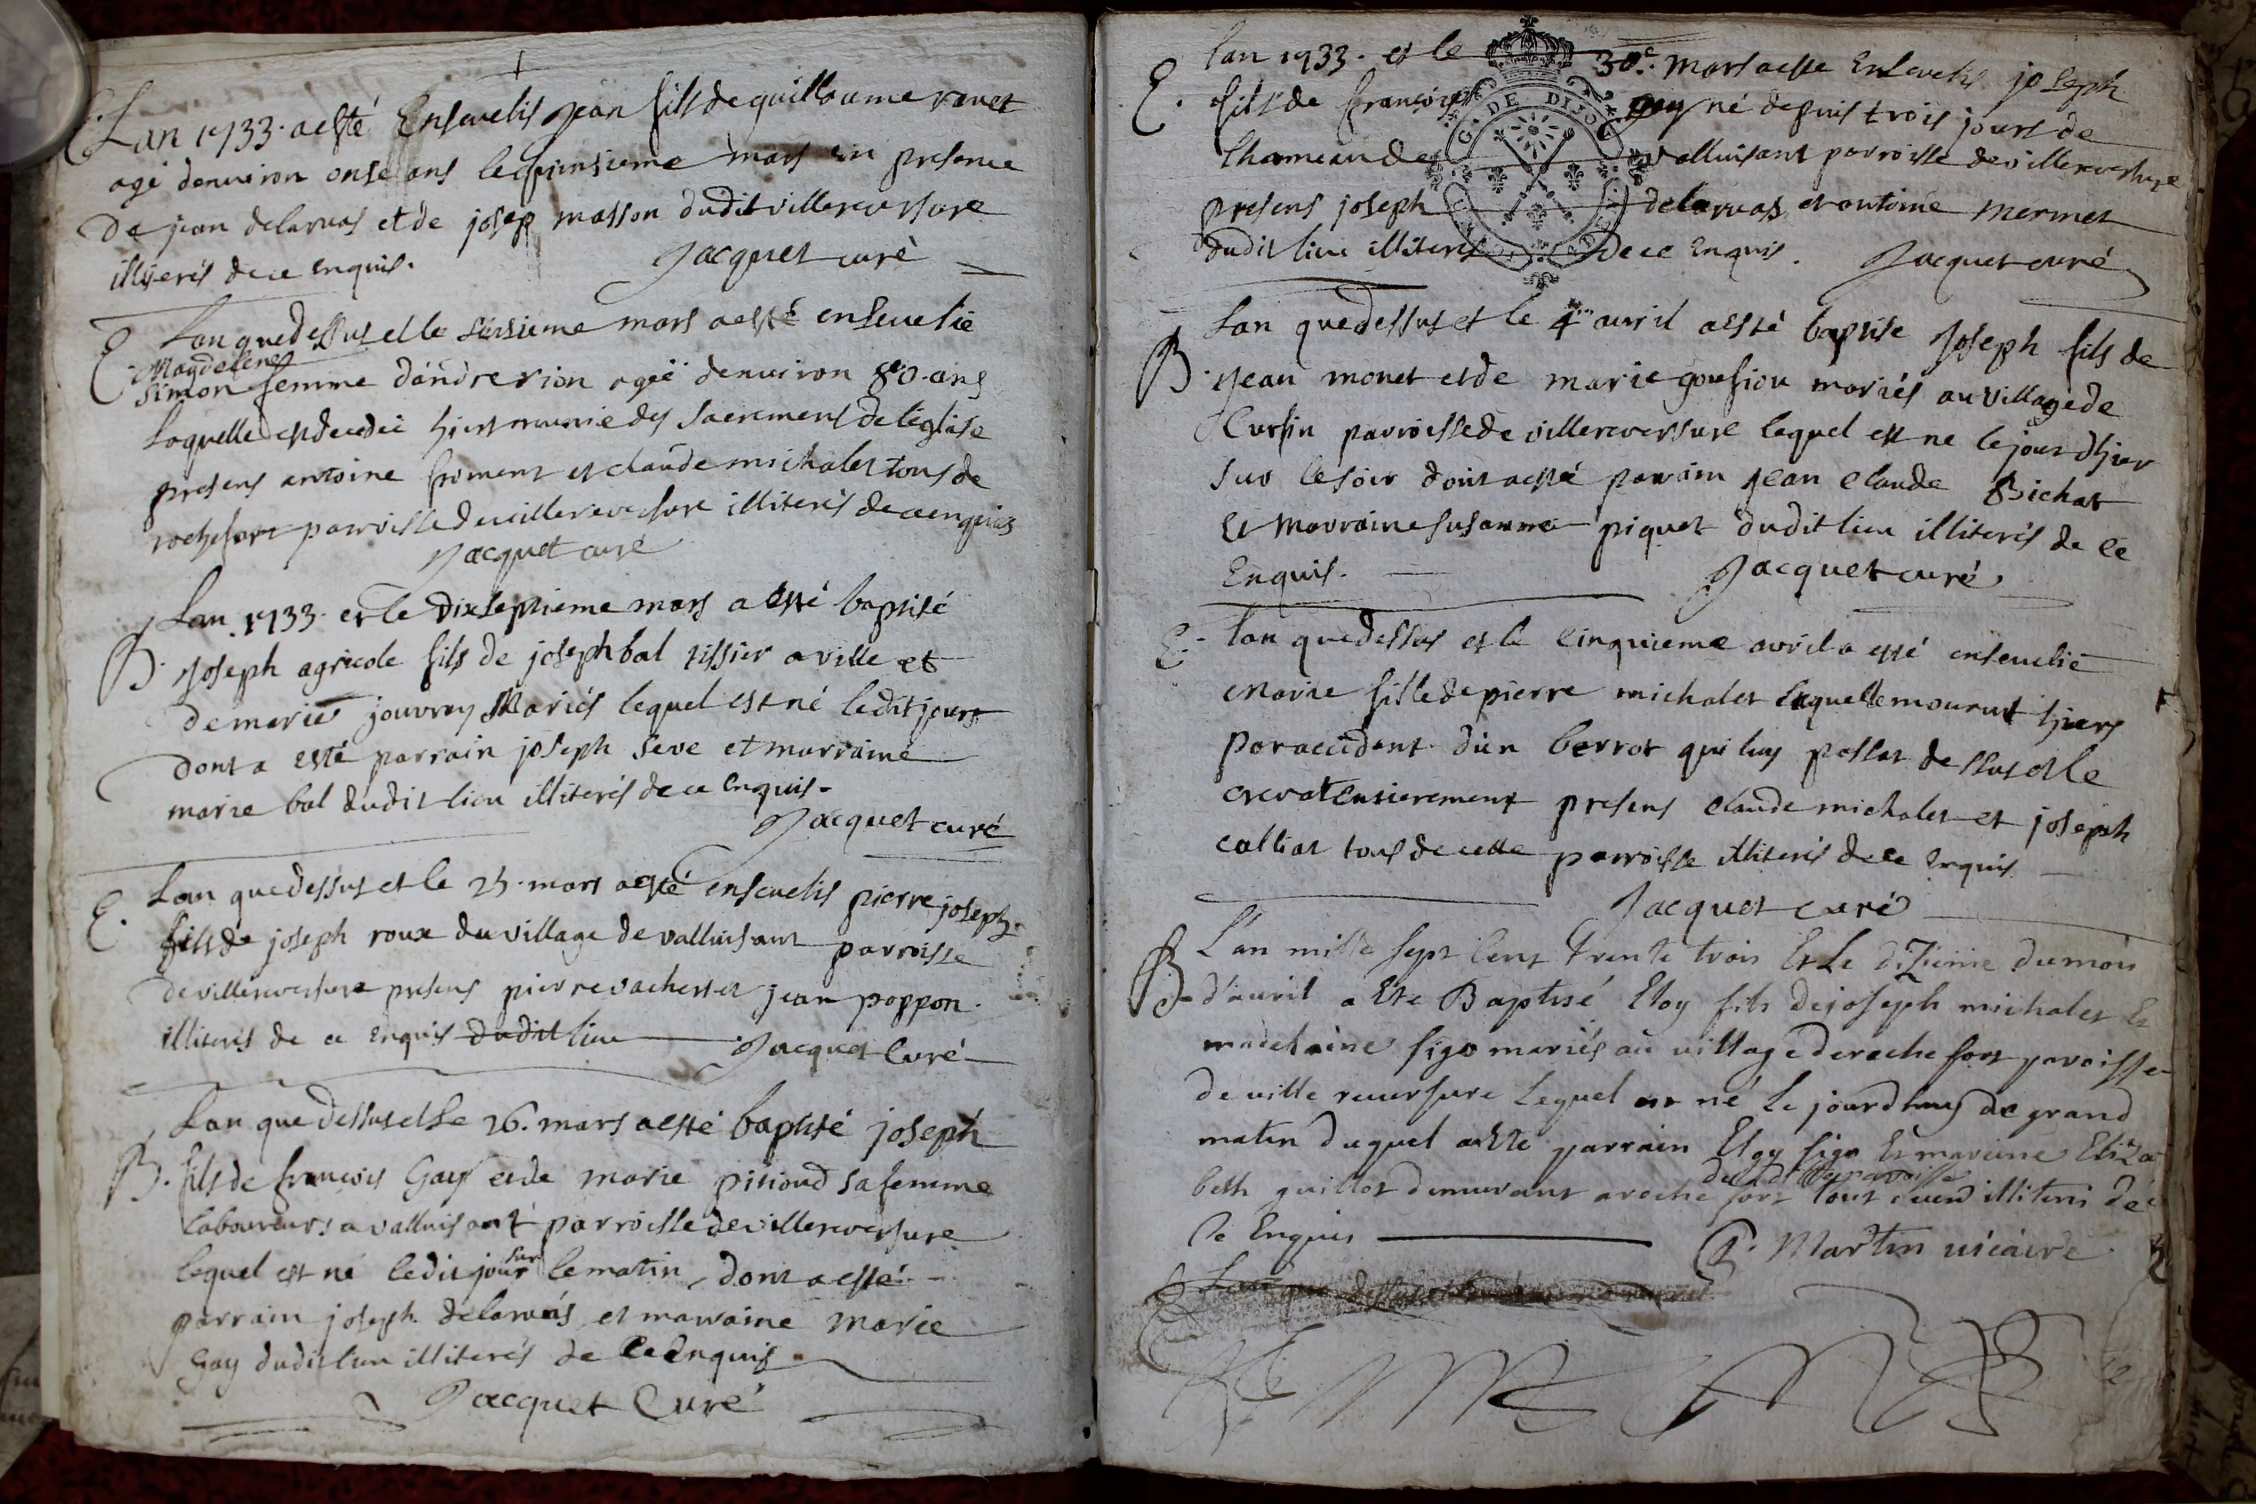 E. Lan 1733. a esté Ensevelis Jean fils de guillaume ravet
agé denviron onse ans le quinsieme mars en presence
de jean delaruas et de josep masson dudit villereversure
illiterés de ce enquis. Jacquet curé
E. Lan que dessus et le seisieme mars a esté ensevelie
Magdelene
simon femme dandre rion agéé denviron 80. ans
laquelle est decedéé hier munie des sacrements de l'eglise
presens antoine froment et claude michalet tous de
rochefort parroisse de villereversure illiterés de ce enquis
Jacquet curé
B. Lan 1733. et le dixseptieme mars a esté baptisé
Joseph agricole fils de joseph bal tissier a ville et
de marie jouvray Mariés lequel est né ledit jour
dont a esté parrain joseph seve et marraine
marie bal dudit lieu illiterés de ce enquis.
Jacquet curé
E. Lan que dessus et le 25. mars a esté ensevelis pierre joseph
fils de joseph roux du village de valluisant parroisse
de villereversure presens pierre vacheret et jean poppon.
illiterés de ce enquis dudit lieu Jacquet Curé
B. Lan que dessus et le 26. mars a esté baptisé joseph
fils de francois Gay et de marie pitioud sa femme
laboureurs a valluisant parroisse de villereversure
lequel est né ledit jour sur le matin, dont a esté
parrain joseph delaruas et marraine marie
Gay dudit lieu illiterés de ce Enquis
Jacquet Curé
E. lan 1733. et le 30e. mars a esté Ensevelis joseph
fils de francois gay né depuis trois jours de
lhameau de valluisant parroisse de villereversure
presens joseph delaruas et antoine mermet
dudit lieu illiterés de ce Enquis. Jacquet curé
G. DE DIJO
B. Lan que dessus et le 4me avril a esté baptise Joseph fils de
Jean monet et de marie goussiou mariés au village de
Cursin parroisse de villereversure lequel est ne le jour d'hier
sur le soir dont a esté parain jean claude Bichat
et marraine susanne piquet dudit lieu illiterés de ce
Enquis. Jacquet curé
E. lan que dessus et le cinquieme avril a esté ensevelie
marie fille de pierre michalet laquelle mourut hier
par accident d'un berrot qui luy passat dessus et le
crevat entierement presens claude michalet et joseph
calliat tous de cette parroisse illiterés de ce enquis
Jacquet curé
B. L'an mille sept cent trente trois Et Le dizieme du mois
d'avril a Ete Baptisé Eloy fils de joseph michalet Et
madelaine figo mariés au village de rochefort paroisse
de ville reversure Lequel est né le jourdhuy de grand
matin duquel a Ete parrain Eloy figo Et mareine Eliza
beth guillot demeurant a rochefort tout deux illiterés de
Ce Enquis P. Martin vicaire